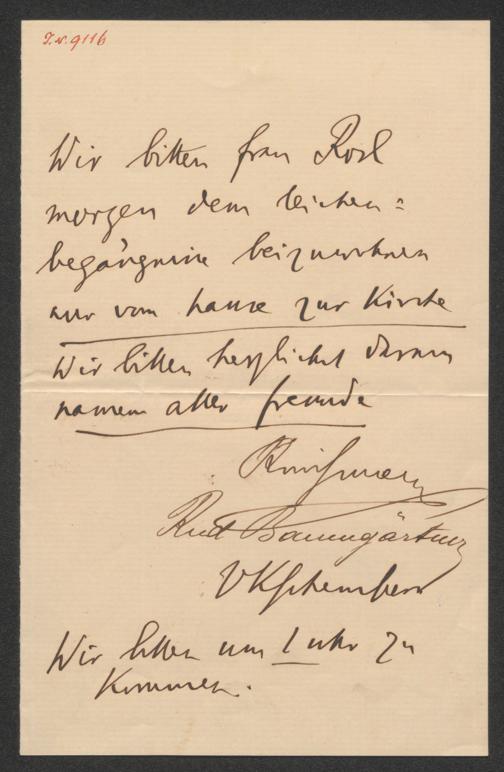 I.N. 9116
Wir bitten frau Rosl
morgen dem leichen=
begängnisse beizuwohnen
nur vom hause zur Kirche
Wir bitten herzlichst darum
namen aller freunde
Baumgärtner
Wir bitten um 1 uhr zu
kommen.